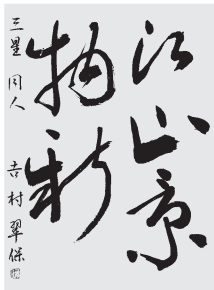 江山景
物新
三星同人 吉村翠保